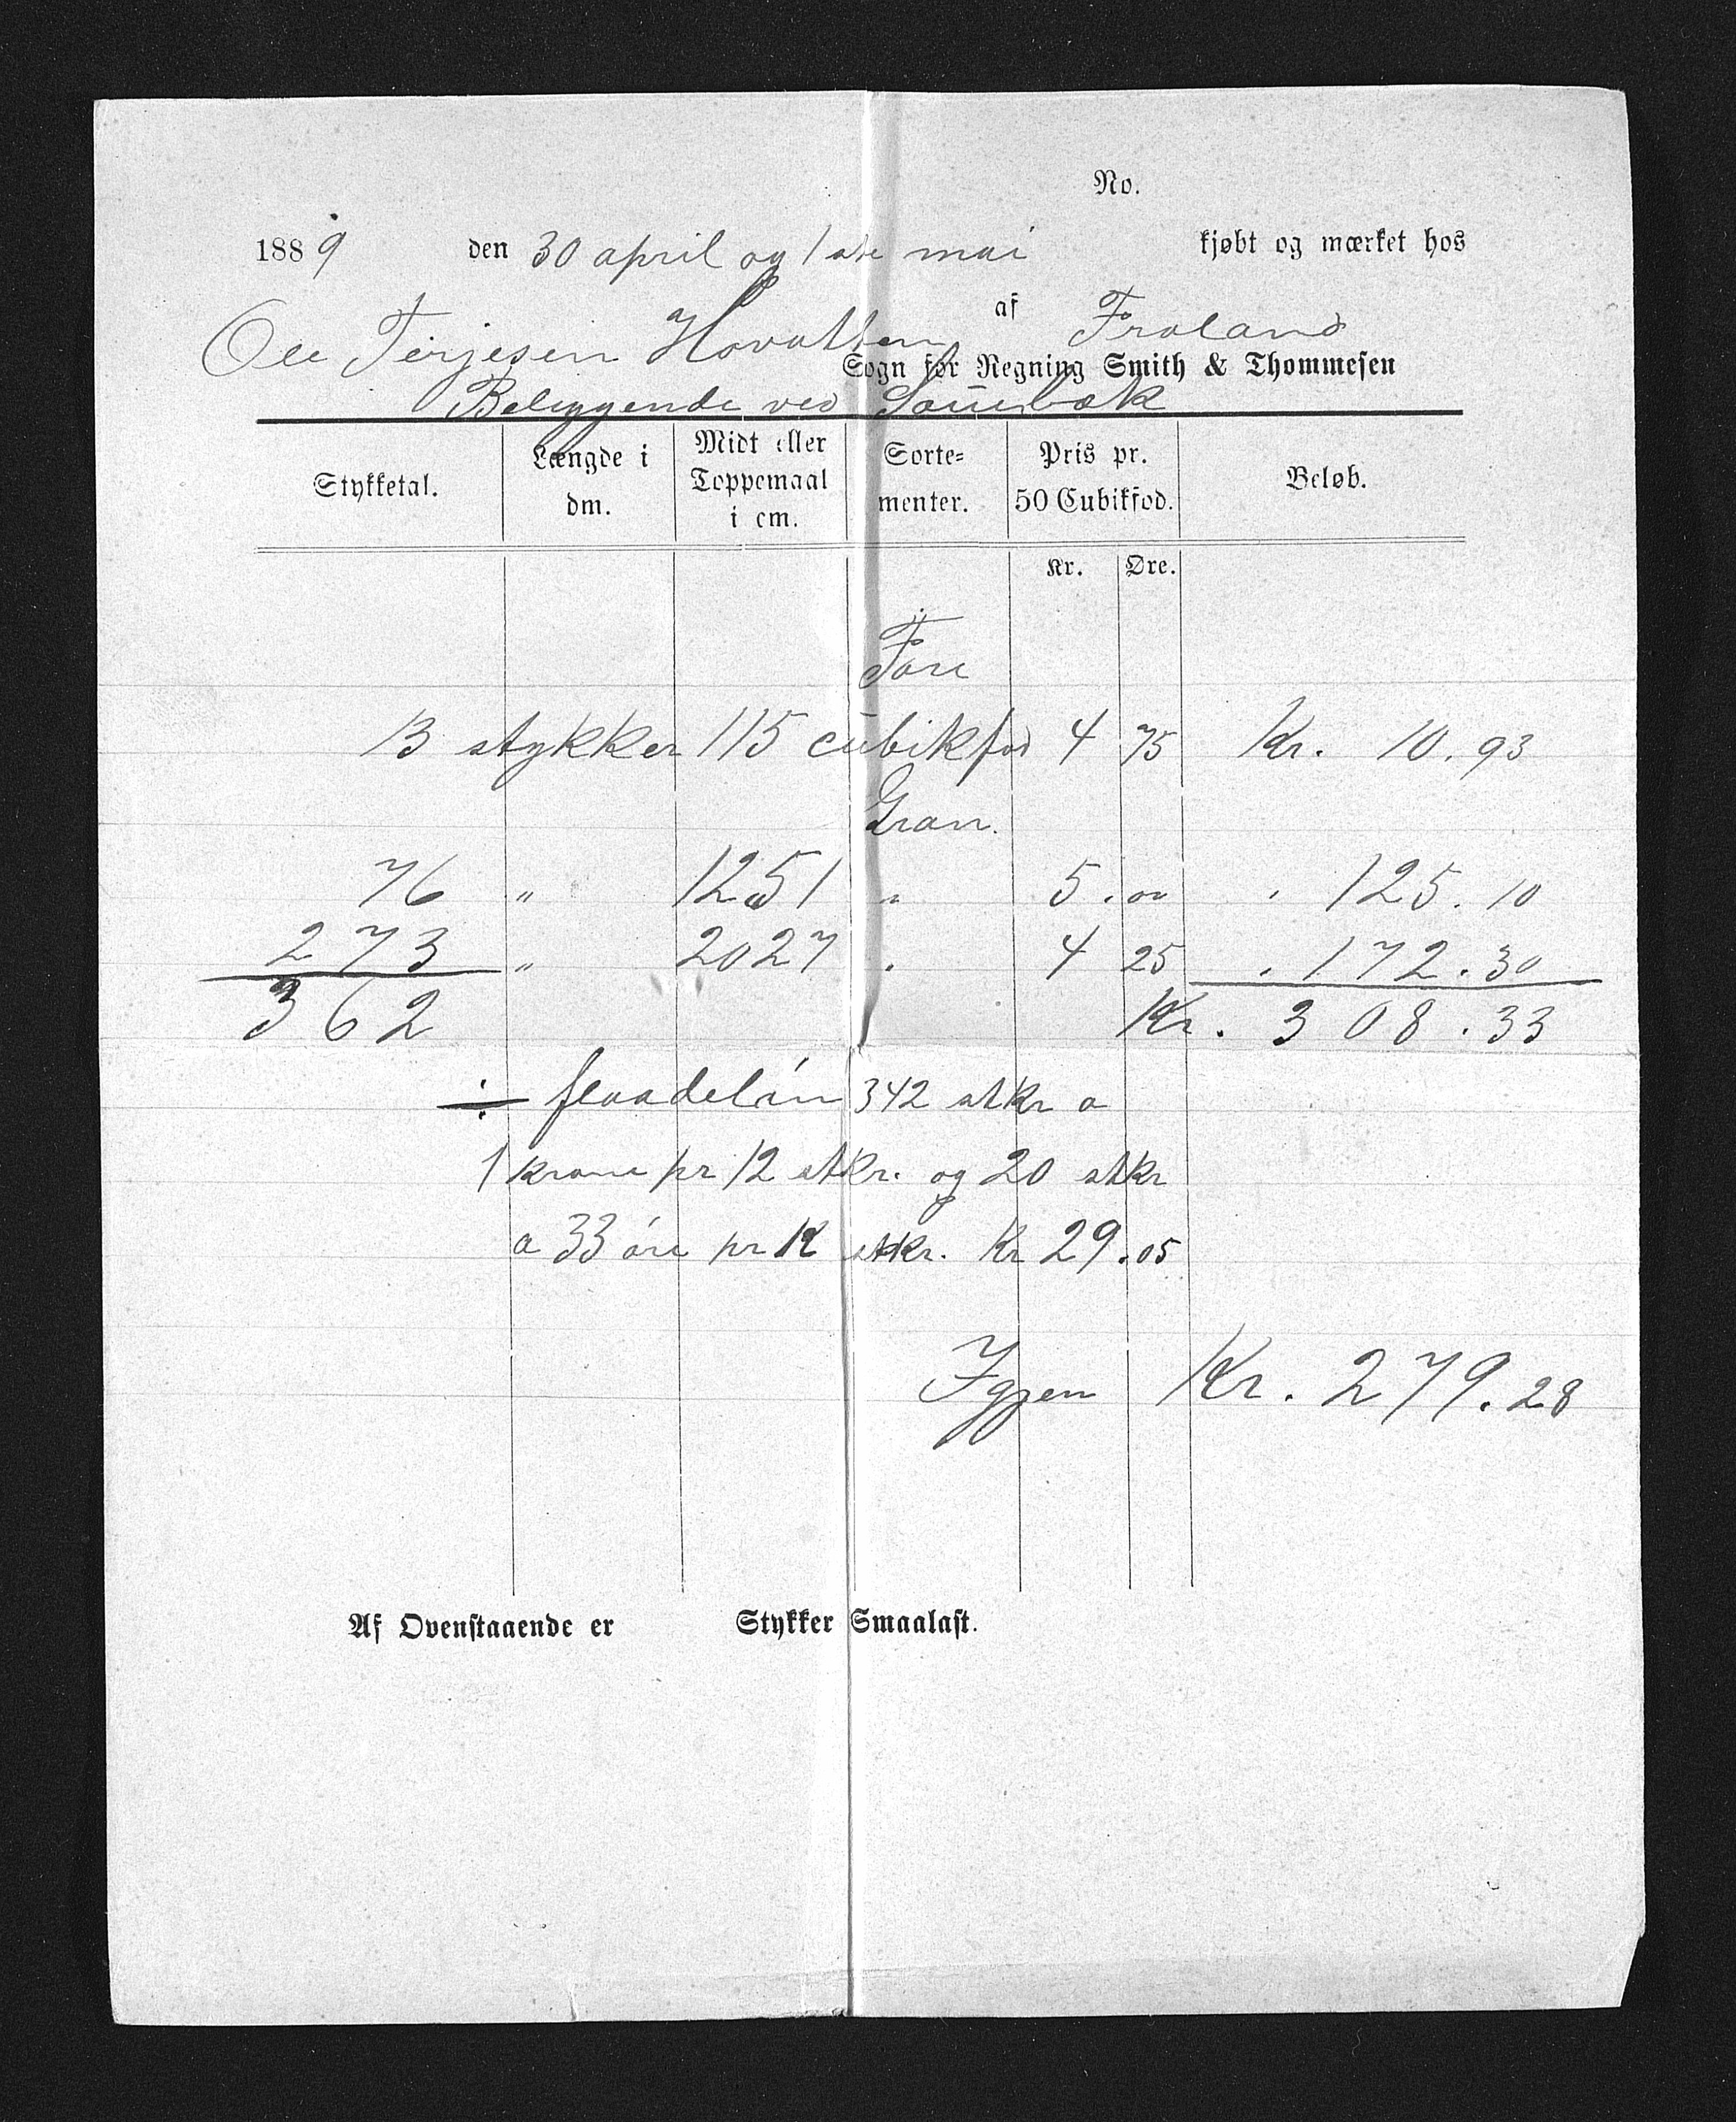 No.
1889 den 30 april og 1ste mai kjøbt og mærket hos
Ole Terjesen Hovatten af Froland
Sogn for Regning Smith & Thommesen
Beliggende ved
Stykketal. Længde i dm. Midt eller Toppemaal i cm. Sorte= menter. Pris pr. 50 Cubikfod. Beløb.
Kr. Øre.
Fure
13 stykker 115 cubikfod 4 75 Kr. 10.93
Gran.
76 " 1251 " 5.00 . 125.10
273 " 2027 . 4 25 . 172.30
362 Kr. 308.33
÷ flaadeløn 342 stkr a
1 krone pr 12 stkr. og 20 stkr
a 33 øre pr 12 stkr. Kr 29.05
Igjen Kr. 279.28
Af Ovenstaaende er Stykker Smaalast.